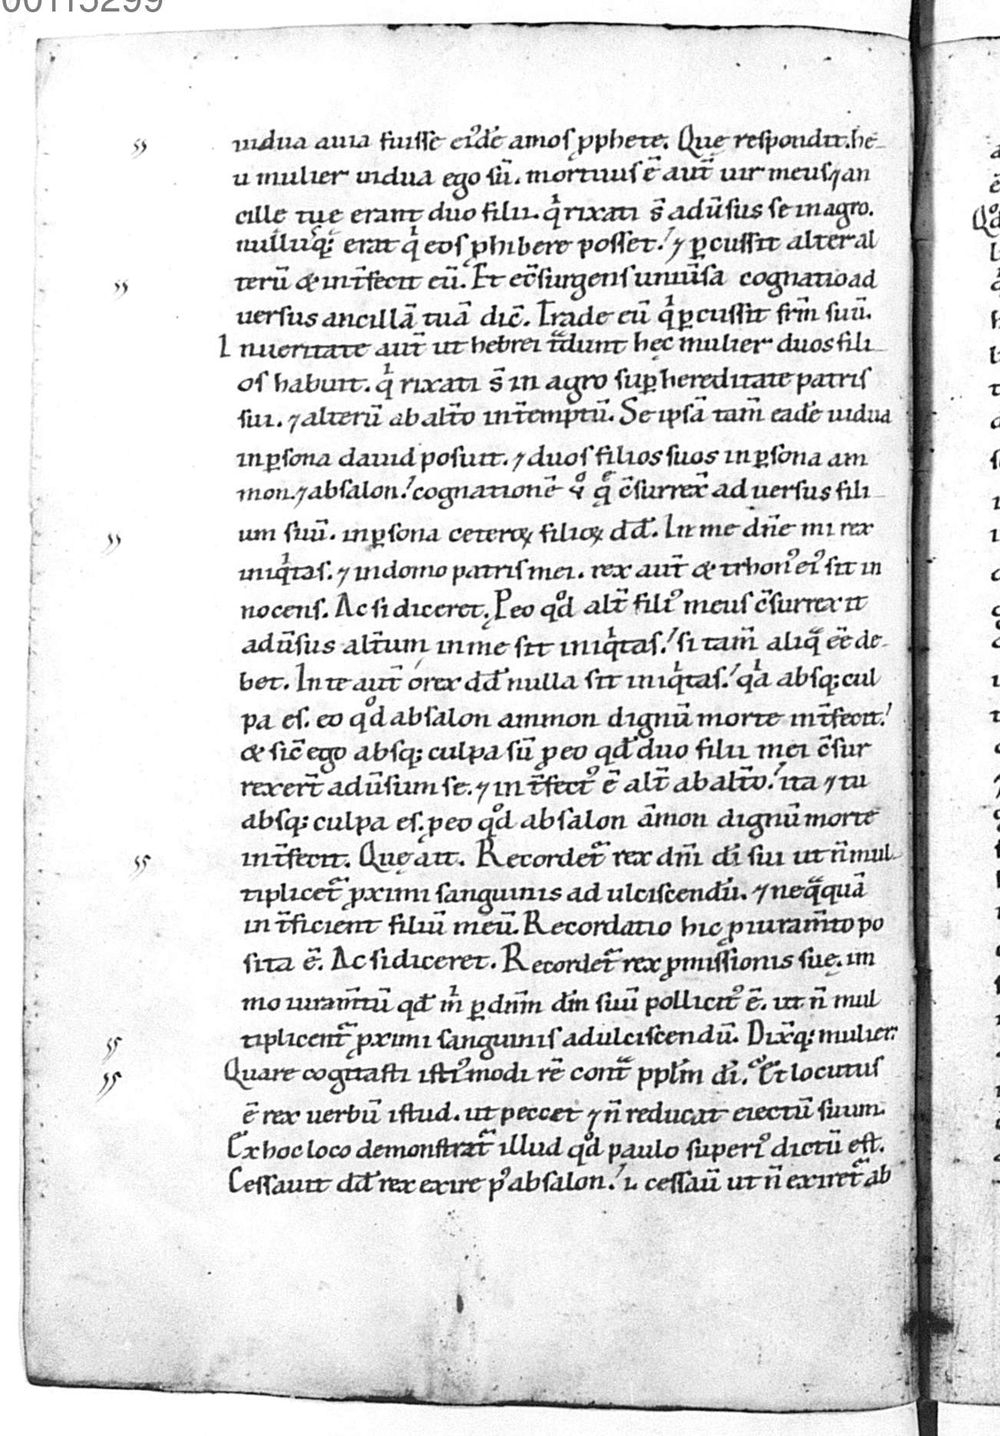 00115299
uidua auia fuisse ei᾿dē amos p̱phete. Que respondit. he-
u mulier uidua ego sū. mortuus ē aut̄ uir meus ⁊ an
cille tuę erant duo filii. qͥ rixati s̄ adūsus se in agro.
nullusq; erat qͥ eos p̱hibere posset. ⁊ ꝑcussit alter al
terū & int̄fecit eū. Et c̄surgens uniūsa cognatio ad
uersus ancillā tuā dic̄. Trade eū qͥ ꝑcussit fr̄m suū.
In ueritate aut̄ ut hebrei t̄dunt hęc mulier duos fili-
os habuit. qͥ rixati s̄ in agro suꝑ hereditate patris
sui. ⁊ alterū ab alt̄o int̄emptū. Se ipsā tam̄ eadē uidua
in ꝑsona dauid posuit. ⁊ duos filios suos in ꝑsona am
mon. ⁊ absalon. cognationē ū q̄ c̄surrex̄ aduersus fili-
um suū. in ꝑsona ceteroꝝ filioꝝ dd̄. In me dn̄e mi rex
iniqͥtas. ⁊ in domo patris mei. rex aut̄ & trhon᾿ ei᾿ sit in
nocens. Ac si diceret. P̱eo qd̄ alt̄ fili᾿ meus c̄surrexit
adūsus alt̄um in me sit iniqͥtas. si tam̄ aliq̄ ēē de-
bet. In te aut̄ o rex dd̄ nulla sit iniqͥtas. qͥa absq; cul
pa es. eo qd̄ absalon ammon dignū morte int̄fecit.
& sic̄ ego absq; culpa sū ꝓeo qd̄ duo filii mei c̄sur
rexer̄t adūsum se. ⁊ int̄fect᾿ ē alt̄ ab alt̄o. ita ⁊ tu
absq; culpa es. ꝓeo qd̄ absalon āmon dignū morte
int̄fecit. Quę ait. Recordet᾿ rex dn̄i dī sui ut n̄ mul-
tiplicet᾿ ꝓximi sanguinis ad ulciscendū. ⁊ neq̄quā
int̄ficient filiū meū. Recordatio hic ꝓ iuram̄to po
sita ē. Ac si diceret. Recordet᾿ rex ꝓmissionis suę. im
mo iuram̄tū qd̄ mͥ ꝑ dn̄m dm̄ suū pollicit᾿ ē. ut n̄ mul
tiplicent᾿ ꝓximi sanguinis ad ulciscendū. Dix̄q; mulier.
Quare cogitasti isti᾿modi rē cont̄ ppl̄m dī. Et locutus
ē rex uerbū istud. ut peccet ⁊ n̄ reducat eiectū suum.
Ex hoc loco demonstrat᾿ illud qd̄ paulo superi᾿ dictū est.
Cessauit dd̄ rex exire p᾿ absalon. i. cessauī ut n̄ exiret᾿ ab